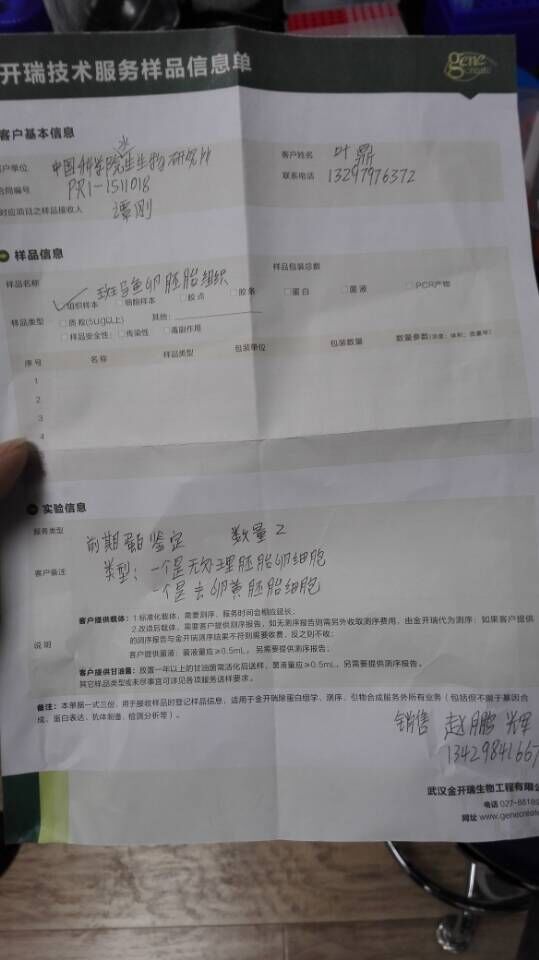 开瑞技术服务样品信息单
gene create
客户基本信息
户单位 中国科学院水生生物研究所
合同编号 PR1-1511018
对应项目之样品接收人 谭刚
客户姓名 叶鼎
联系电话 13297976372
样品信息
样品名称 斑马鱼卵胚胎组织 样品包装总数
样品类型 ✓组织样本 □胶点 □胶条 □蛋白 □菌液 □PCR产物
□质粒(5UG以上) 其他:
□样品安全性: □传染性 □毒副作用
序号 名称 样品类型 包装单位 包装数量 数量参数
1
2
3
4
实验信息
服务类型
前期蛋白鉴定 数量2
客户备注 类型:一个是无处理胚胎卵细胞
一个是去卵黄胚胎细胞
客户提供载体:1.标准化载体,需要测序,服务时间会相应延长。
2.改造后载体,需要客户提供测序报告,如无测序报告则需另外收取测序费用,由金开瑞代为测序;如果客户提供
说明 的测序报告与金开瑞测序结果不符则需要收费,反之则不收;
客户提供菌液:菌液量应≥0.5mL。另需要提供测序报告;
客户提供甘油菌:放置一年以上的甘油菌需活化后送样,菌液量应≥0.5mL。另需要提供测序报告。
其它样品类型或未尽事宜可详见各项服务送样要求。
备注:本单据一式三份,用于接收样品时登记样品信息,适用于金开瑞除蛋白组学、测序、引物合成服务外所有业务(包括但不限于基因合
成、蛋白表达、抗体制备、检测分析等)。
销售 赵鹏辉
13429841667
武汉金开瑞生物工程有限
电话 027-8818
网址 www.genecreate